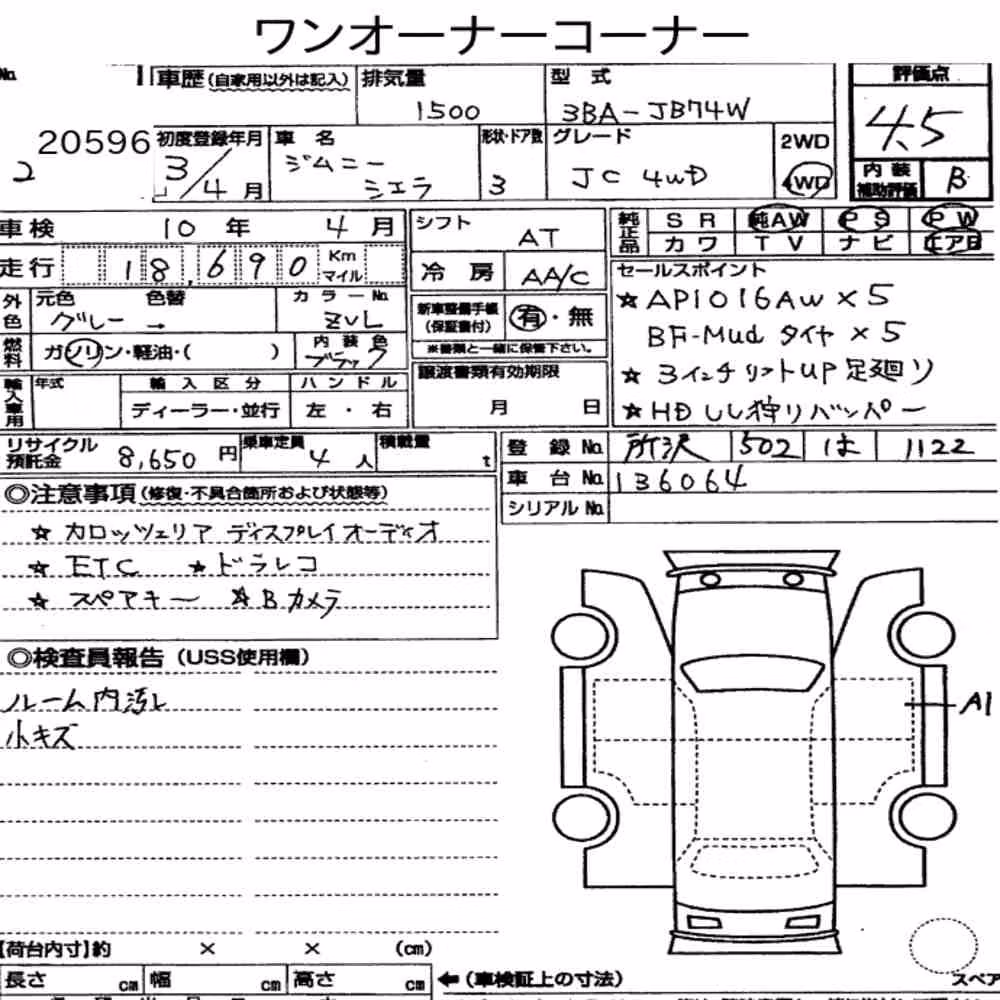 ワンオーナーコーナー
No. 車歴(自家用以外は記入) 排気量 型式 評価点
1500 3BA-JB74W 4.5
20596 初度登録年月 車名 形状・ドア数 グレード 2WD
2 3/4月 ジムニー シエラ 3 JC 4WD 4WD 内装補助評価 B
車検 10年 4月 シフト AT 純正品 SR 純AW PS PW
カワ TV ナビ エア日
走行 18,690 Km マイル 冷房 AA/C セールスポイント
外色 元色 色替 カラーNo. 新車整備手帳(保証書付) 有・無 ☆API016AW×5
グレー → ZVL BF-Mud タイヤ×5
燃料 ガソリン・軽油・( ) 内装色 ブラック ※書類と一緒に保管下さい。 ☆3インチリフトUP足廻り
輸入車用 年式 輸入区分 ハンドル 譲渡書類有効期限
ディーラー・並行 左・右 月 日 ☆HDLL狩りバンパー
リサイクル預託金 8,650円 乗車定員 4人 積載量 t 登録No. 所沢 502 は 1122
◎注意事項(修復・不具合箇所および状態等) 車台No. 136064
シリアルNo.
☆カロッツェリア ディスプレイオーディオ
☆ETC ☆ドラレコ
☆スペアキー ☆Bカメラ
◎検査員報告(USS使用欄)
ルーム内汚レ
小キズ
A1
【荷台内寸】約 × × (cm)
長さ cm 幅 cm 高さ cm ←(車検証上の寸法) スペア